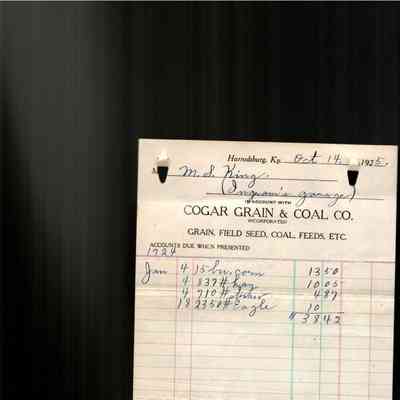 Harrodsburg, Ky. Oct 14, 1925.
M. S. King.
(Ingram's garage)
IN ACCOUNT WITH
COGAR GRAIN & COAL CO.
INCORPORATED
GRAIN, FIELD SEED, COAL, FEEDS, ETC.
ACCOUNTS DUE WHEN PRESENTED
1924
Jan 4 15 bu. corn 13 50
4 837# hay 10 05
4 710# straw 4 87
18 2350# Eagle 10
$ 38 42